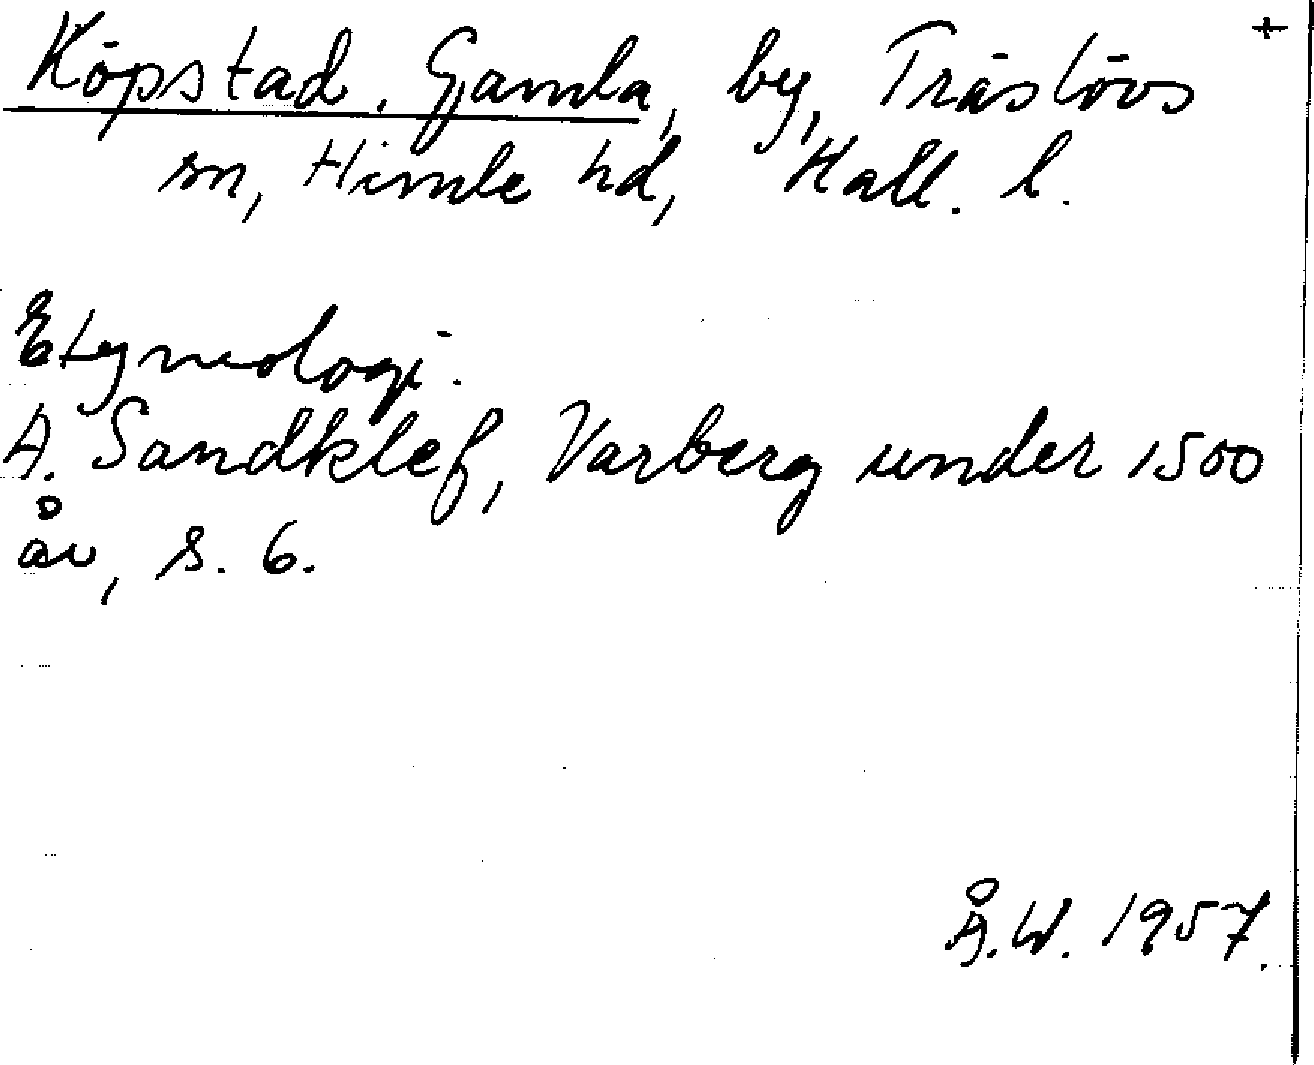 Köpstad, Gamla, by, Träslövs +
sn, Himle hd, Hall. l.
Etymologi.
A. Sandklef, Varberg under 1500
år, s. 6.
Å.W. 1957.